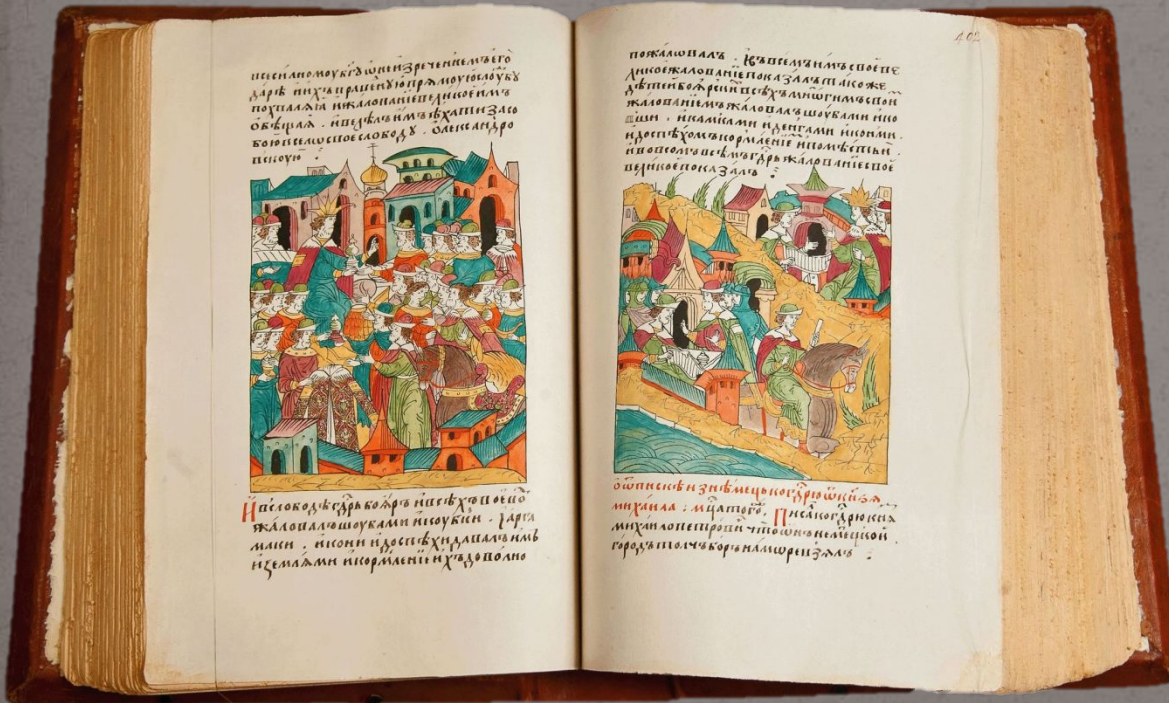 всесилномоу бг҃у ѿ неизреченнемъ его
дарѣ . и ихъ правеную прямоую слоужбу
похваляя и жалованіе великое имъ
обѣщая . и велѣлъ имъ ѣхати за со
бою всемъ в свое слободу . олександро
вскоую :
И в слободѣ гдрь бояръ и всѣхъ воевѡ
жаловалъ шоубами и коубки . і арга
маки . и кони и доспѣхи давалъ имъ
и землями и кормленіе ихъ доволно
402
пожаловалъ . Къ всемъ имъ свое ве
ликое жалованіе показалъ такоже
дѣтей боярски всѣхъ многимъ свои
жалованіемъ жаловалъ шоубами и ко
пши . и камками и денгами и конми .
и доспѣхомъ кормленіе и помѣстьи .
и во всомъ всѣмъ гдрь жалованіе свое
великое показалъ :
о ѿписке из немецъ ко гдрю ѿ кнзя
михаила : м҃ц҃а того . Писа ко гдрю кнзь
михаило петрович что ѡнъ немецкой
городъ толчьборъ на мѡре взялъ :